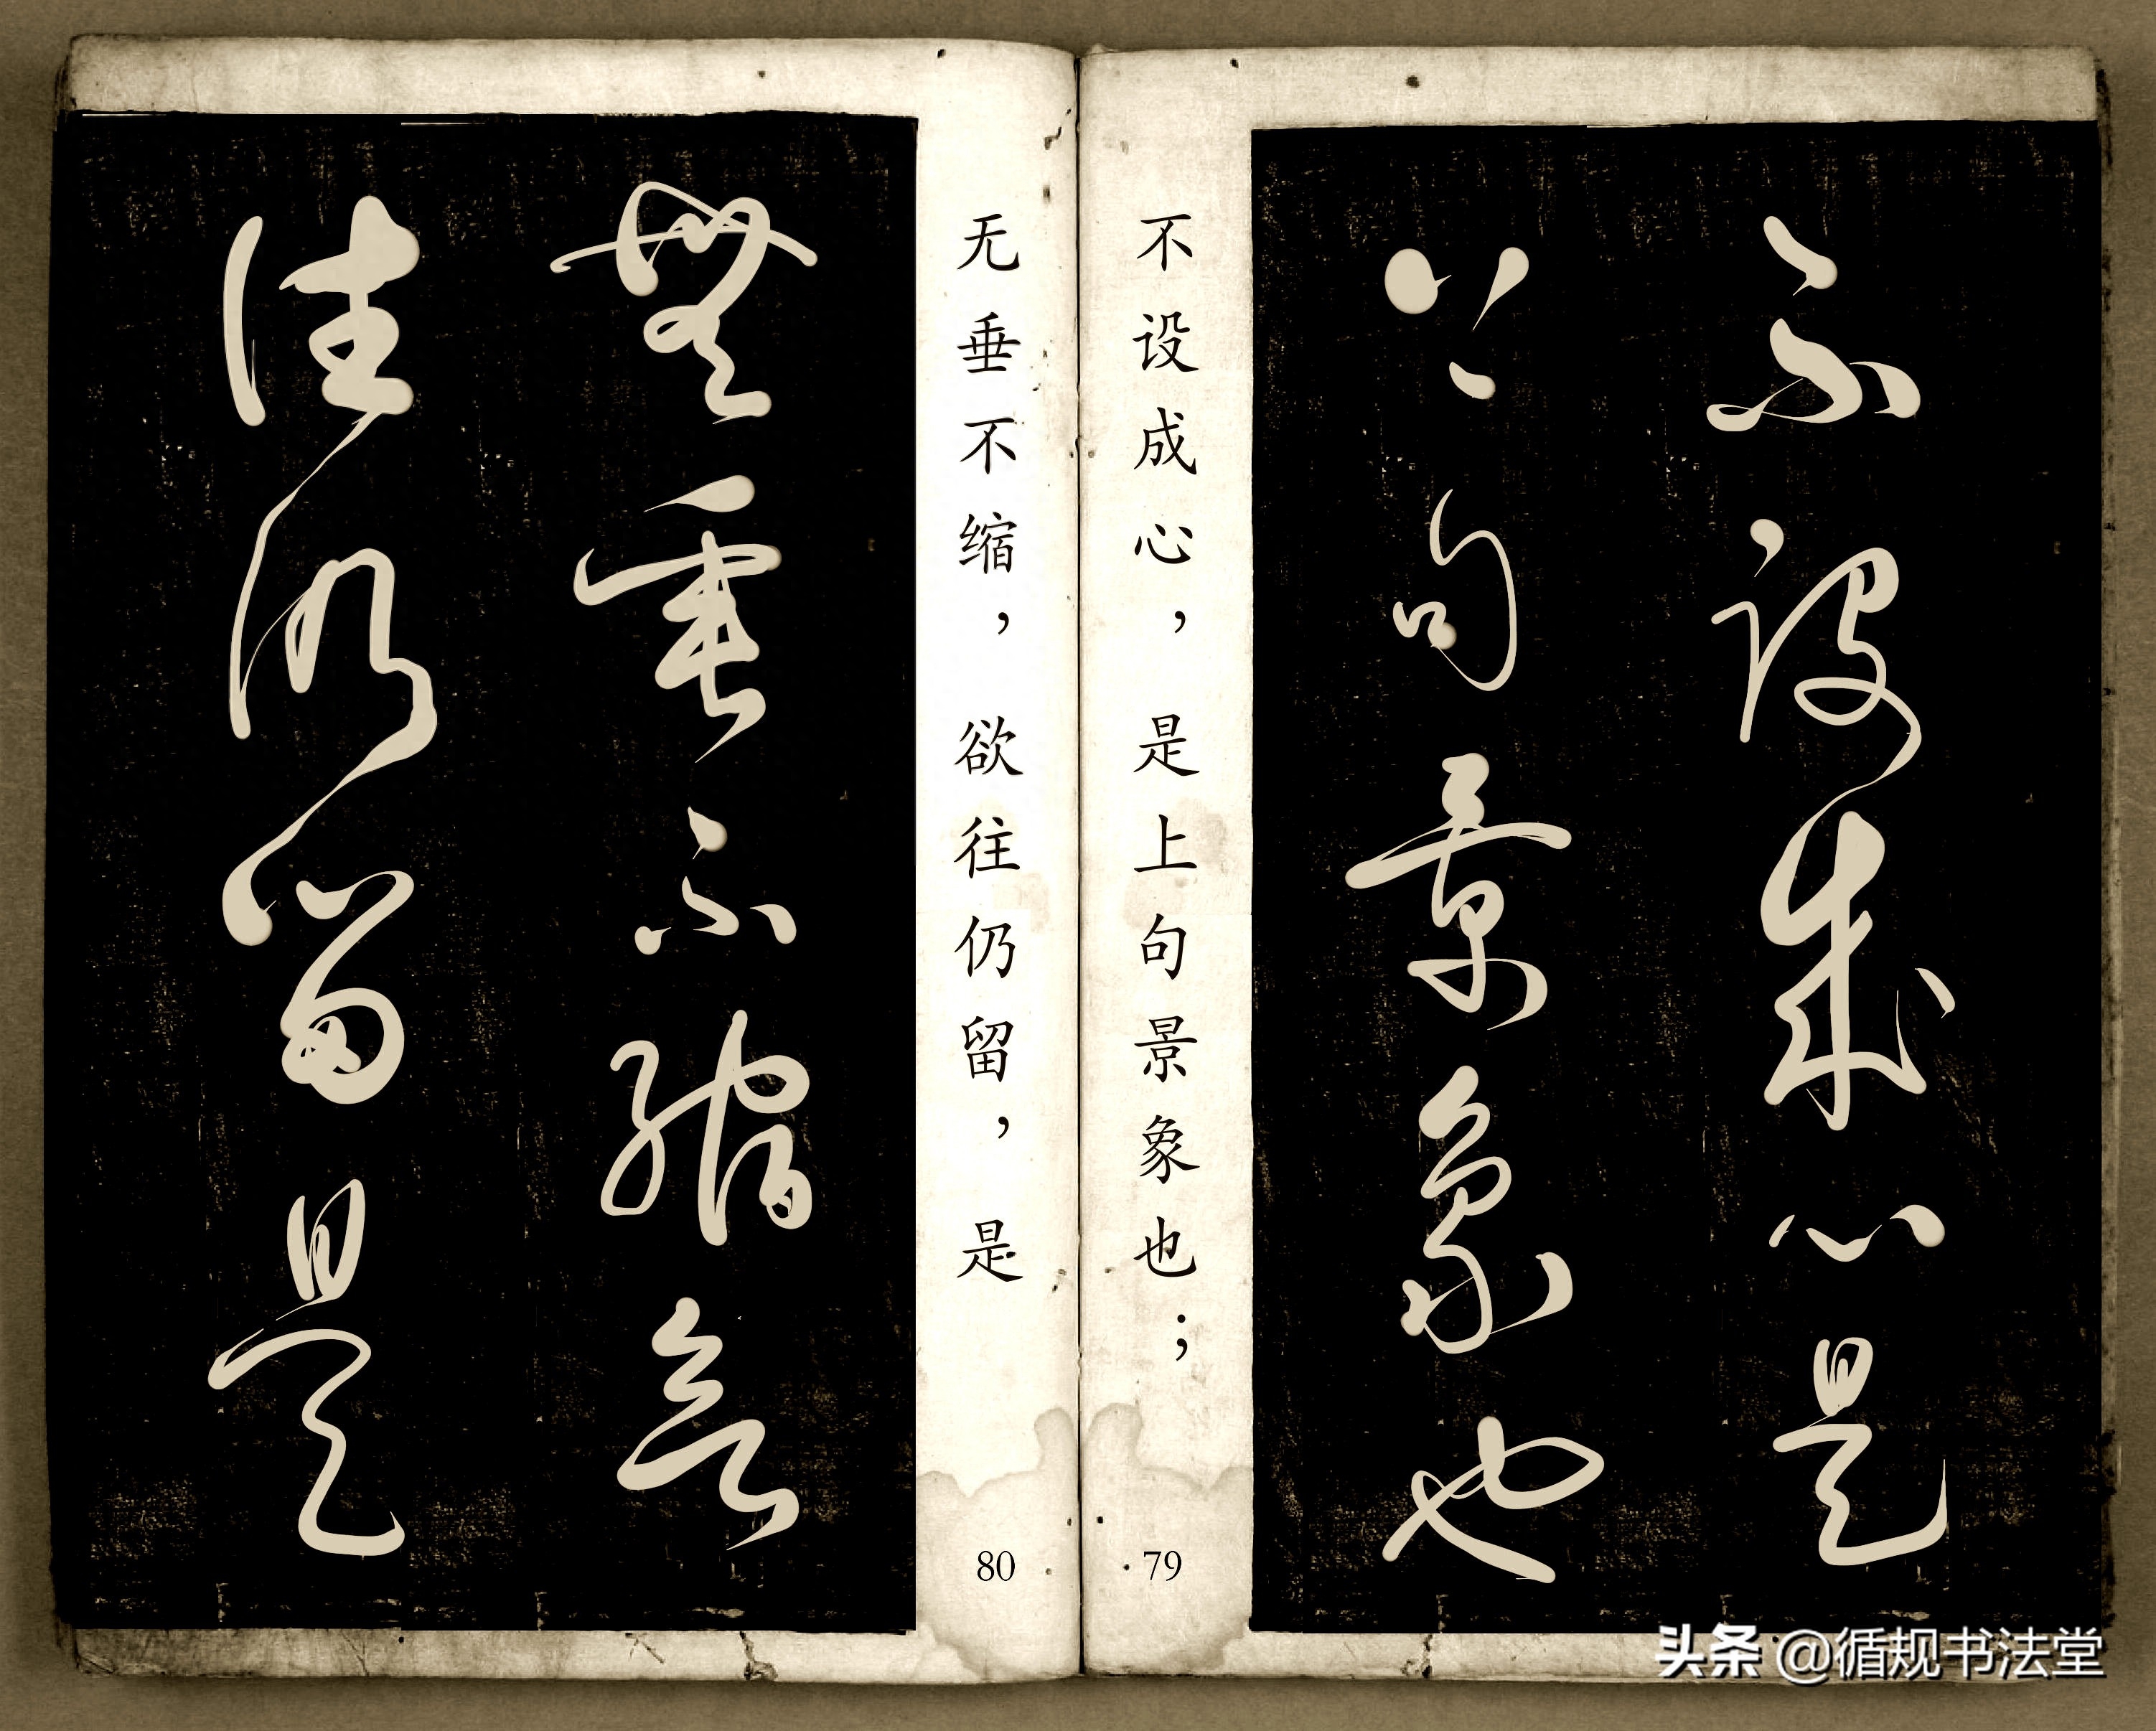 不設成心是
上句景象也
不设成心，是上句景象也；
79
无垂不缩，欲往仍留，是
80
無垂不縮欲
往仍留是
头条 @循规书法堂